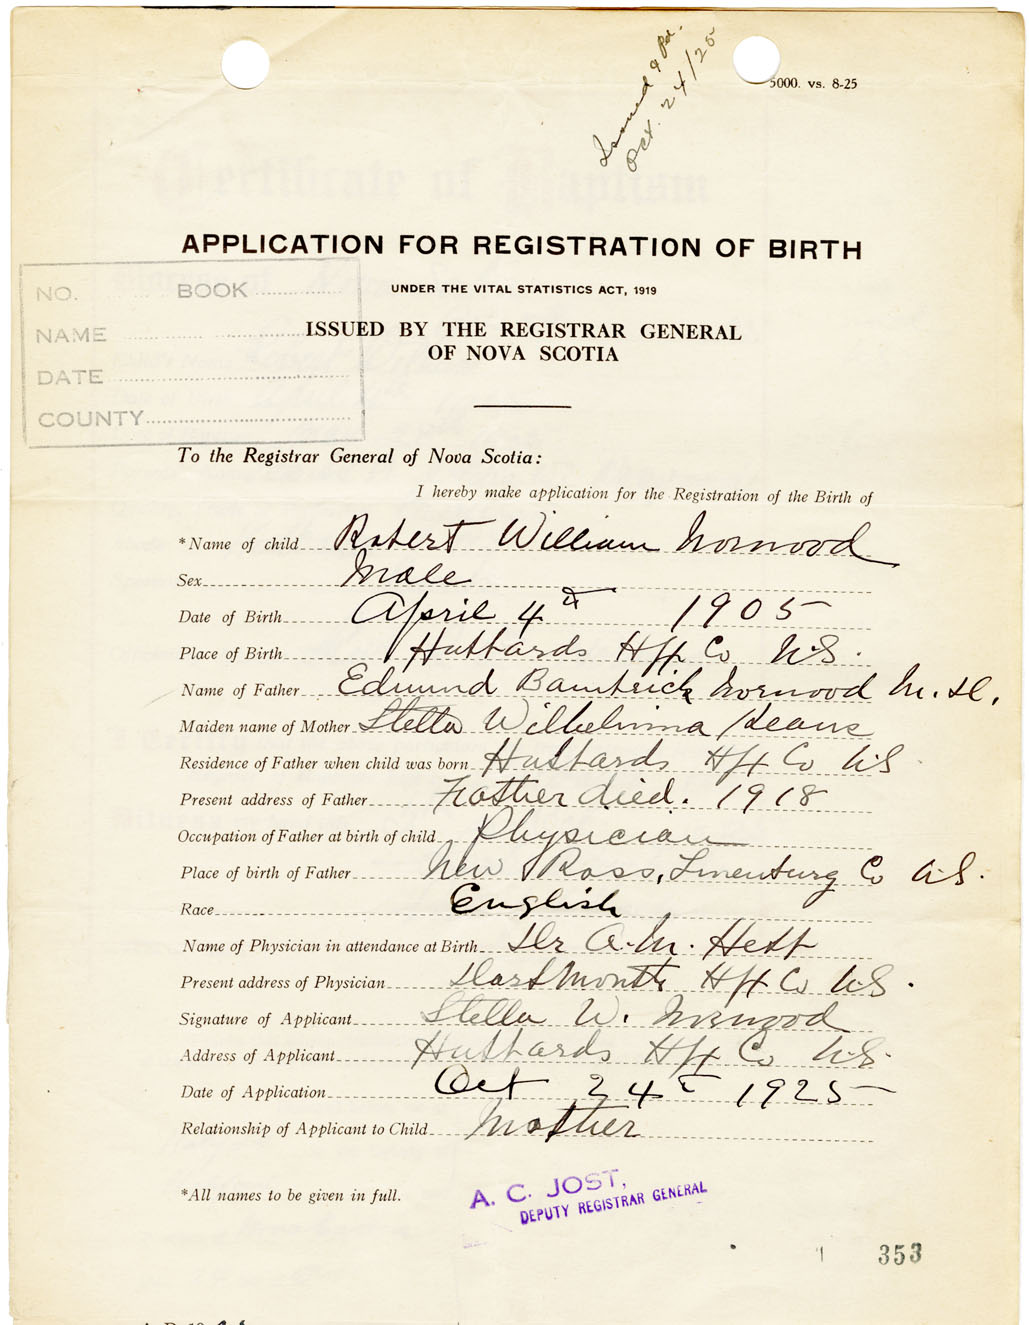 Issued & Pd.
Oct. 24/25
5000. vs. 8-25
APPLICATION FOR REGISTRATION OF BIRTH
UNDER THE VITAL STATISTICS ACT, 1919
ISSUED BY THE REGISTRAR GENERAL
OF NOVA SCOTIA
NO. BOOK
NAME
DATE
COUNTY
To the Registrar General of Nova Scotia:
I hereby make application for the Registration of the Birth of
*Name of child Robert William Norwood
Sex Male
Date of Birth April 4th 1905
Place of Birth Hubbards Hfx Co N.S.
Name of Father Edmund Bambrick Norwood M.D.
Maiden name of Mother Stella Wilhelmina Keans
Residence of Father when child was born Hubbards Hfx Co N.S.
Present address of Father Father died. 1918
Occupation of Father at birth of child Physician
Place of birth of Father New Ross, Lunenburg Co N.S.
Race English
Name of Physician in attendance at Birth Dr A. M. Hebb
Present address of Physician Dartmouth Hfx Co N.S.
Signature of Applicant Stella W. Norwood
Address of Applicant Hubbards Hfx Co N.S.
Date of Application Oct 24th 1925
Relationship of Applicant to Child Mother
*All names to be given in full.
A. C. JOST,
DEPUTY REGISTRAR GENERAL
353